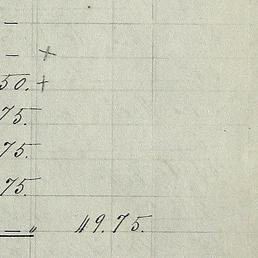 –
– +
50. +
75.
75.
75.
– „ 49.75.